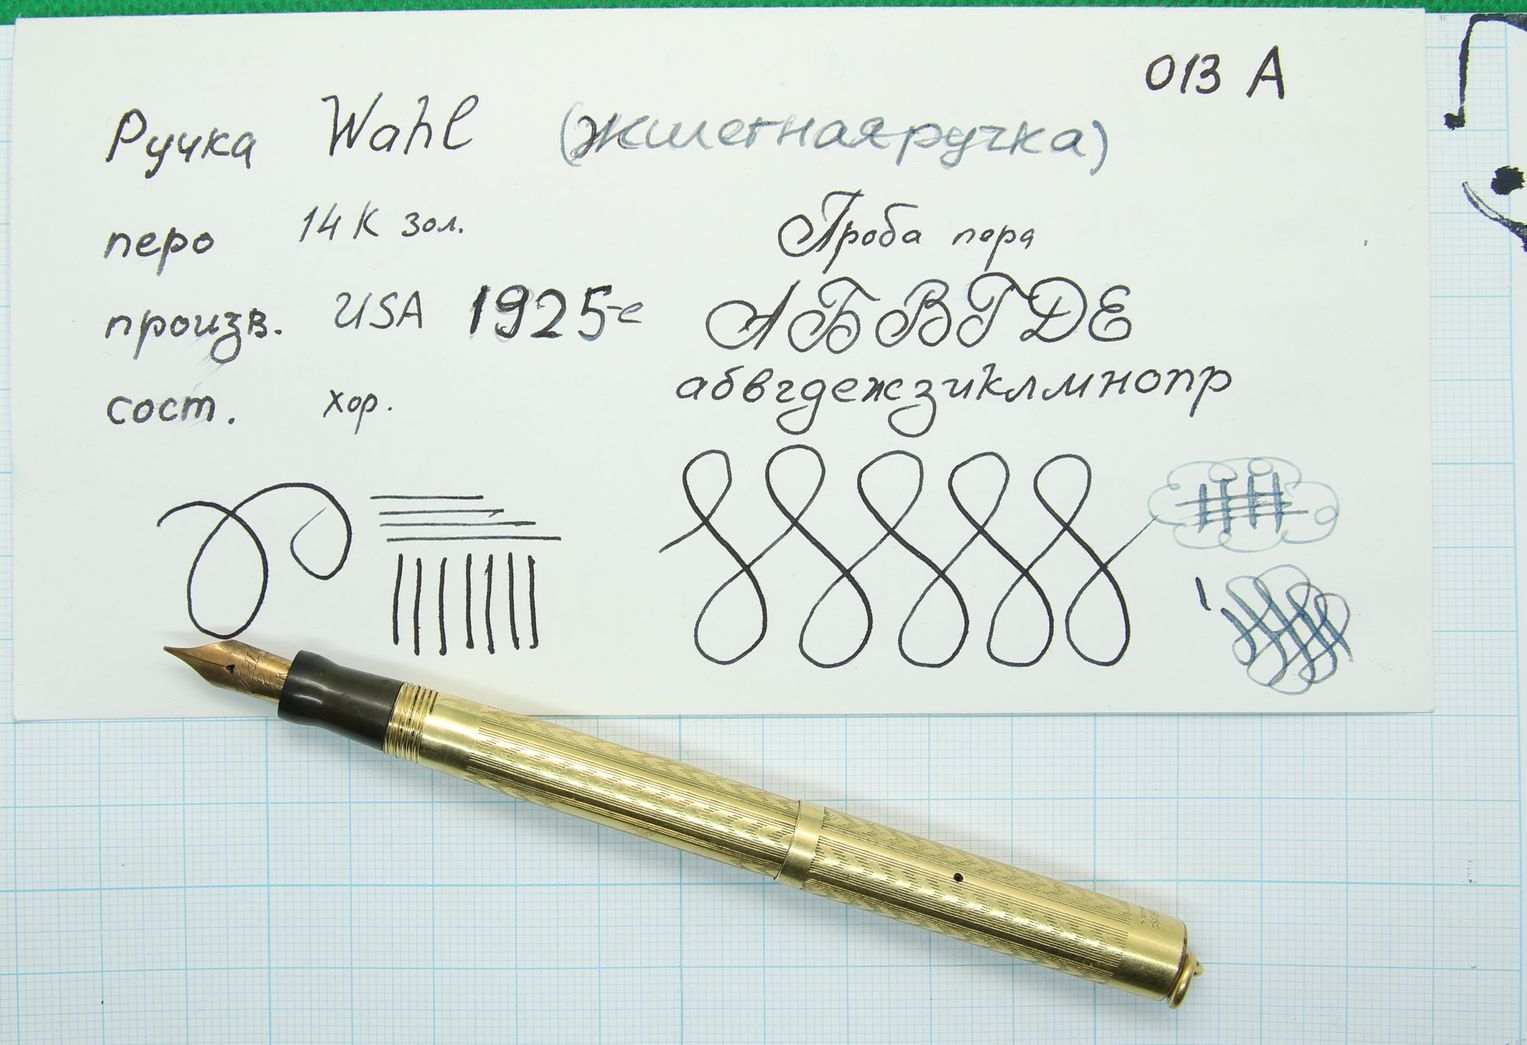 013 А
Ручка Wahl (жилетная ручка)
перо 14К зол.
Проба пера
произв. USA 1925-е
АБВГДЕ
абвгдежзиклмнопр
сост. хор.